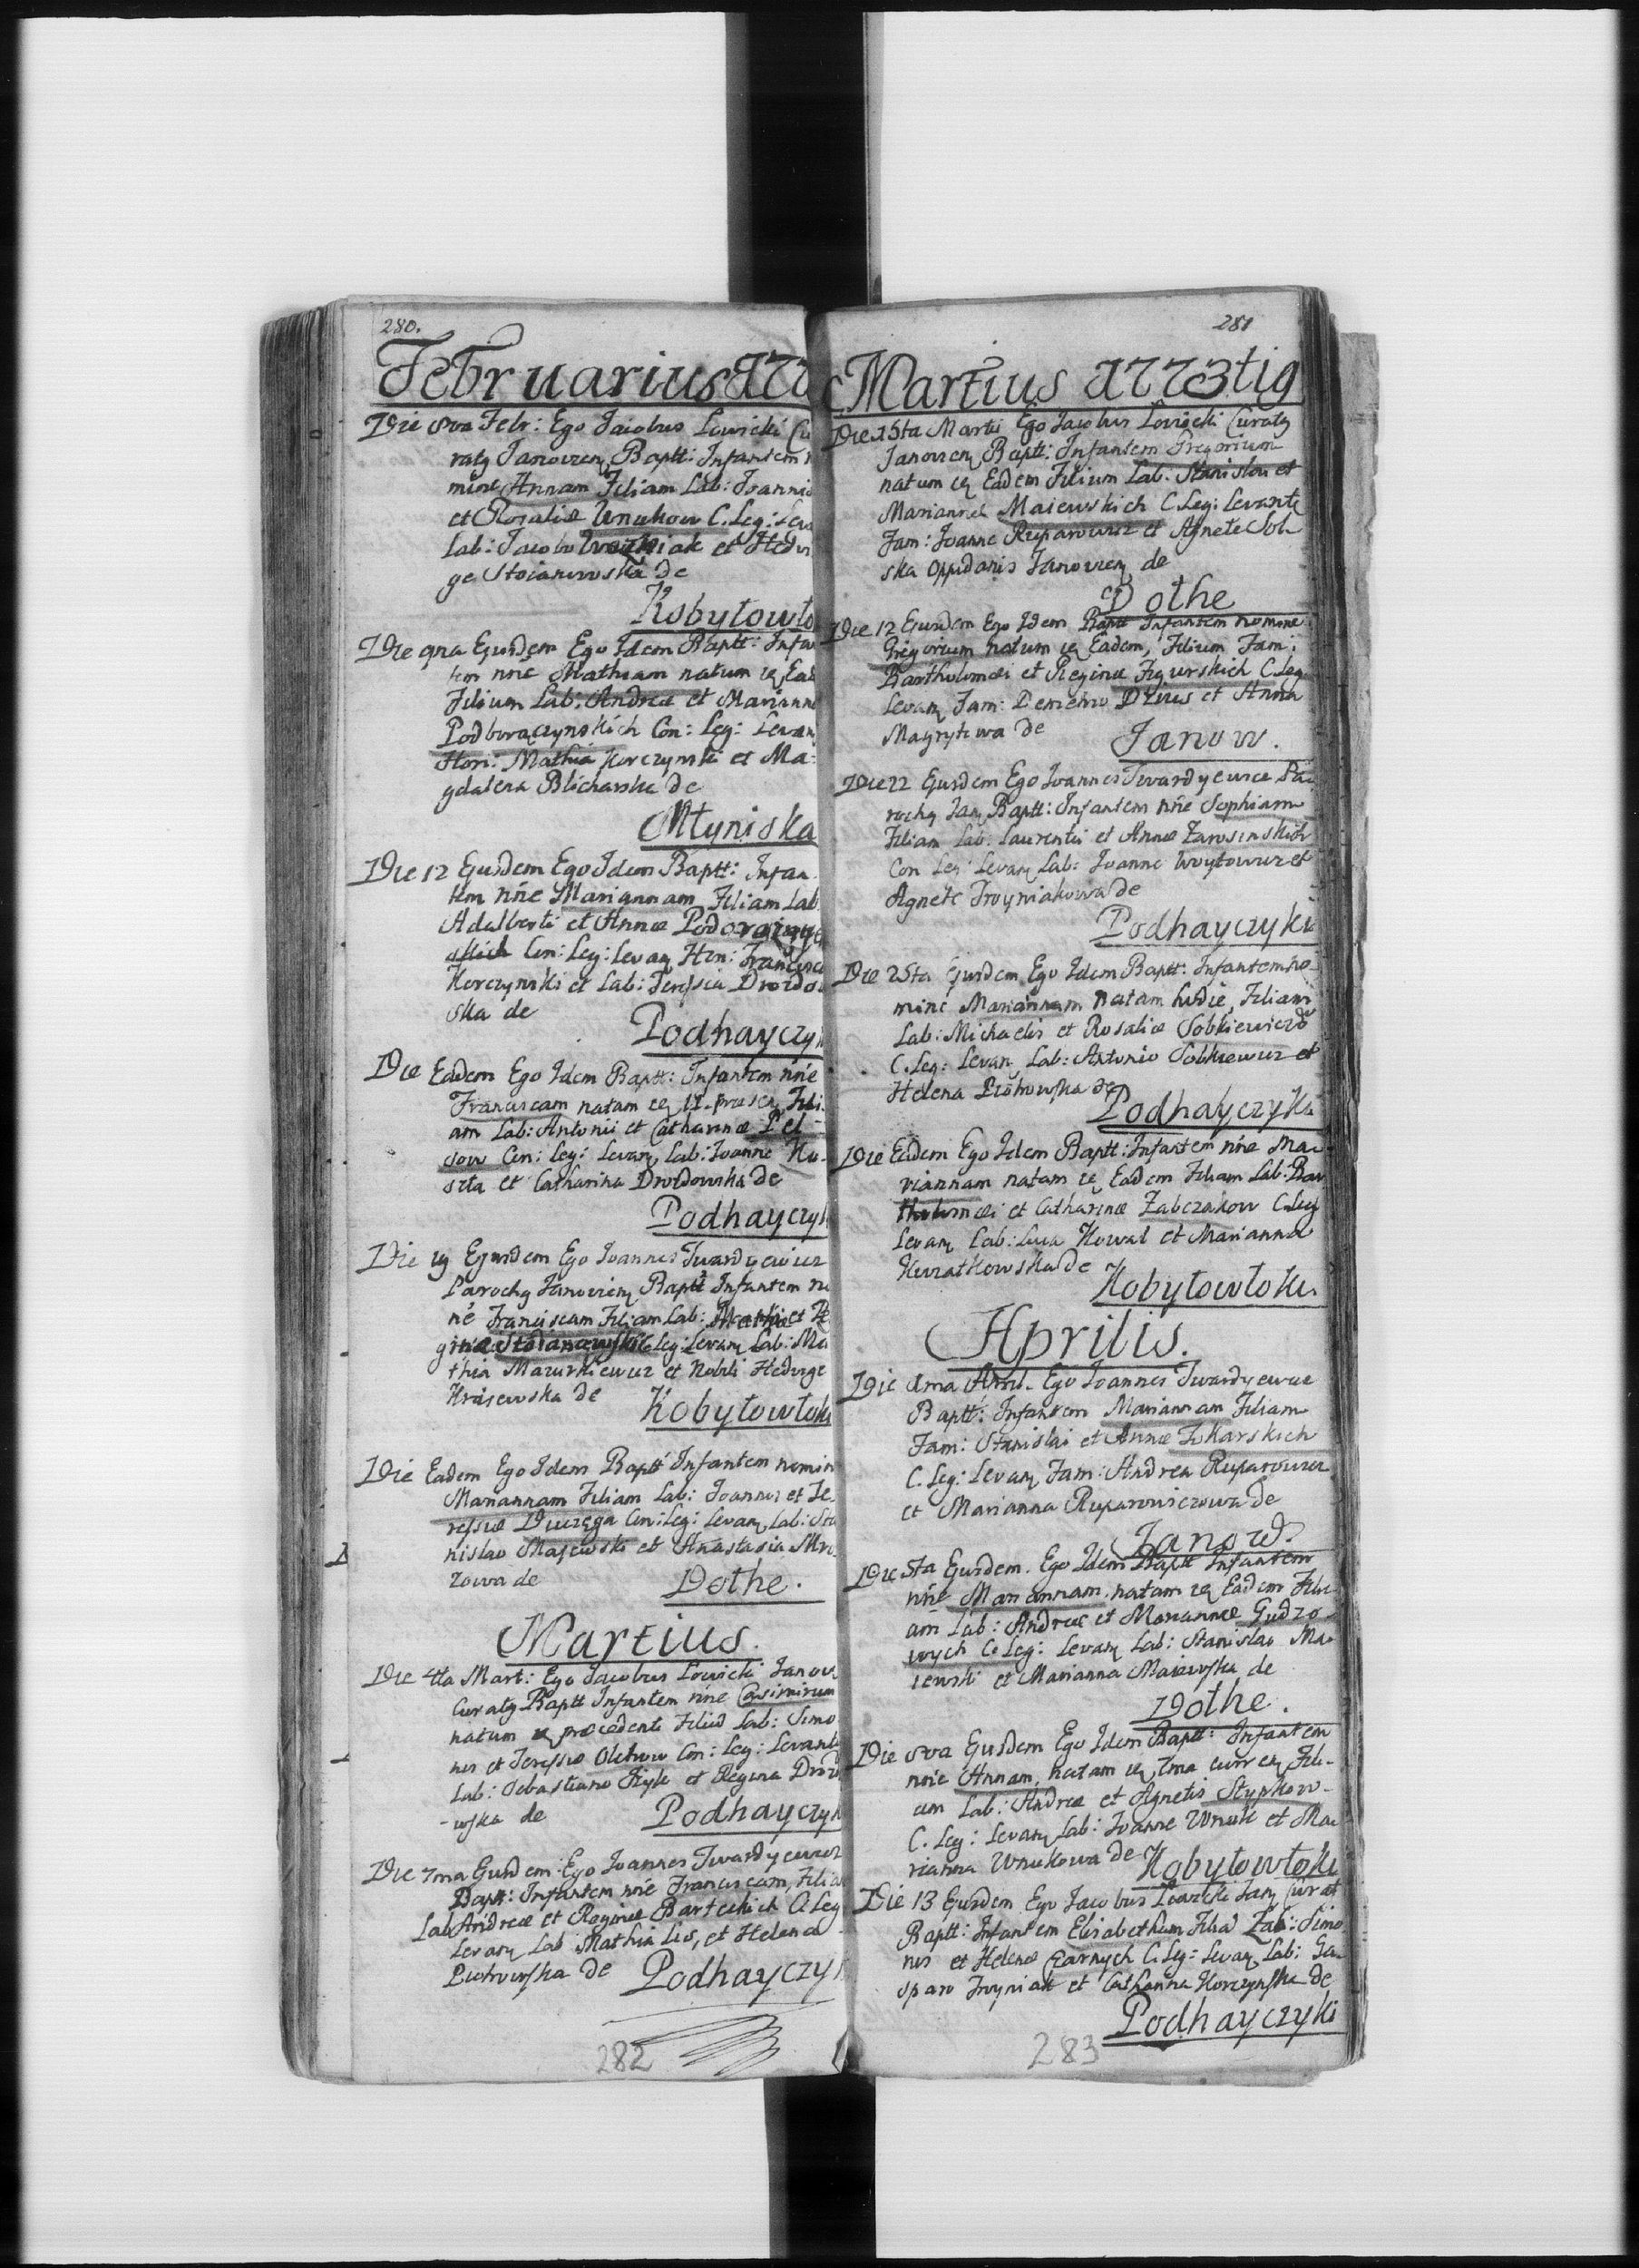 280.
Februarius 177
Die 8va Febr: Ego Jacobus Lowicki Cu
ratq Janovien Baptt: Infantem
mine Annam Filiam Lab: Joannis
et Rosaliæ Wnukow C. Leg: Leva
Lab: Jacobo et Hedvi
ge Stoianowska de
Kobyłowło
Die 9na Ejusdem Ego Idem Baptt: Infan
tem nne Mathiam natum Ead
Filium Lab: Andreæ et Marianna
Podboraczynskich Con: Leg: Levan
Hon: Mathia Korczynski et Ma-
gdalena Blicharska de
Młyniska
Die 12 Ejusdem Ego Idem Baptt: Infan
tem nne Mariannam Filiam Lab.
Adalberti et Annæ
skich Con: Leg: Levan Hon: Francisco
Korczynski et Lab: Teressia Drozdo
ska de
Podhayczy
Die Eadem Ego Idem Baptt: Infantem nne
Franciscam natam 11 Fili-
am Lab: Antonii et Catharinæ Pel
sow Con: Leg: Levan Lab: Joanne Ko-
szta et Catharina Drozdowska de
Podhayczyk
Die 19 Ejusdem Ego Joannes Twardyewicz
Parochq Janovien Baptt Infantem no
ne Franciscam Filiam Lab: et Re
ginæ Leg: Levan Lab: Ma
thia Mazurkiewicz et Nobili Hedvige
Krasewska de
Kobyłowłoki
Die Eadem Ego Idem Baptt Infantem nomin
Mariannam Filiam Lab: Joannis et Te-
ressiæ Con: Leg: Levan Lab: Sta
nislao Majewski et Anastasia Mro-
zowa de
Dołhe.
Martius.
Die 4ta Mart: Ego Jacobus Lowicki Janov
Curatq Baptt Infantem nne Casimirum
natum præcedenti Filiū Lab: Simo
nis et Teressiæ Con: Leg: Levante
Lab: Sebastiano et Regina Drozd
-wska de
Podhayczyk
Die 7ma Ejusdem: Ego Joannes Twardyewicz
Baptt: Infantem nne Franciscam, Filia
Lab Andreæ et Reginæ Bartechich C: Leg
Levan Lab Mathia Lis, et Helena
Piotrowska de
Podhayczyk
282
281
Martius 1773tiq
Die 15ta Martii Ego Jacobus Lowicki Curatq
Janovien Baptt: Infantem Gregorium
natum Eadem Filium Lab: Stanislai et
Mariannæ Maiewskich C. Leg: Levante
Fam: Joanne Ruparowicz et Agnete Sol
ska oppidanis Janovien de
Dołhe
Die 12 Ejusdem Ego Idem Baptt Infantem nomine
Gregorium natum Eadem, Filium Fam:
Bartholomæi et Reginæ Figurskich C. Leg
Levan Fam: Demetrio et Anna
Magrytowa de
Janow.
Die 22 Ejusdem Ego Joannes Twardyewicz Pa-
rochq Jan Baptt: Infantem nne Sophiam
Filiam Lab: Laurentii et Annæ Zarosinskich
Con Leg: Levan Lab: Joanne Woytowicz et
Agnete Troyniakowa de
Podhayczyki
Die 25ta Ejusdem Ego Idem Baptt: Infantem no-
mine Mariannam natam hodie, Filiam
Lab: Michaelis et Rosaliæ Sobkiewiczow
C. Leg: Levan Lab: Antonio Sobkiewicz et
Helena Piotrowska de
Podhayczyki
Die Eadem Ego Idem Baptt: Infantem nne Ma-
riannam natam Eadem Filiam Lab: Bar
tholomæi et Catharinæ Zabczakow C. Leg
Levan Lab: Luca Kowal et Marianna
Kwiatkowska de
Kobyłowłoki.
Aprilis.
Die 1ma April. Ego Joannes Twardyewicz
Baptt: Infantem Mariannam Filiam
Fam: Stanislai et Annæ Tokarskich
C. Leg: Levan Fam: Andrea Ruparowicz
et Marianna Ruparowiczowa de
Janow
Die 5ta Ejusdem. Ego Idem Baptt Infantem
nne Mariannam, natam Eadem Fili-
am Lab: Andreæ et Mariannæ Gudzo-
wych C. Leg: Levan Lab: Stanislao Ma-
iewski et Marianna Maiewska de
Dołhe.
Die 8va Ejusdem Ego Idem Baptt: Infantem
nne Annam, natam 7ma curren Fili-
am Lab: Andreæ et Agnetis Stypkow-
C. Leg: Levan Lab: Joanne Wnuk et Ma-
rianna Wnukowa de
Kobyłowłoki
Die 13 Ejusdem Ego Jacobus Lowicki Jan Curat
Baptt: Infantem Elisabetham Filiā Lab: Simo
nis et Helenæ Czarnych C. Leg: Levan Lab: Ga-
sparo Troyniak et Catharina Korczynska de
Podhayczyki
283